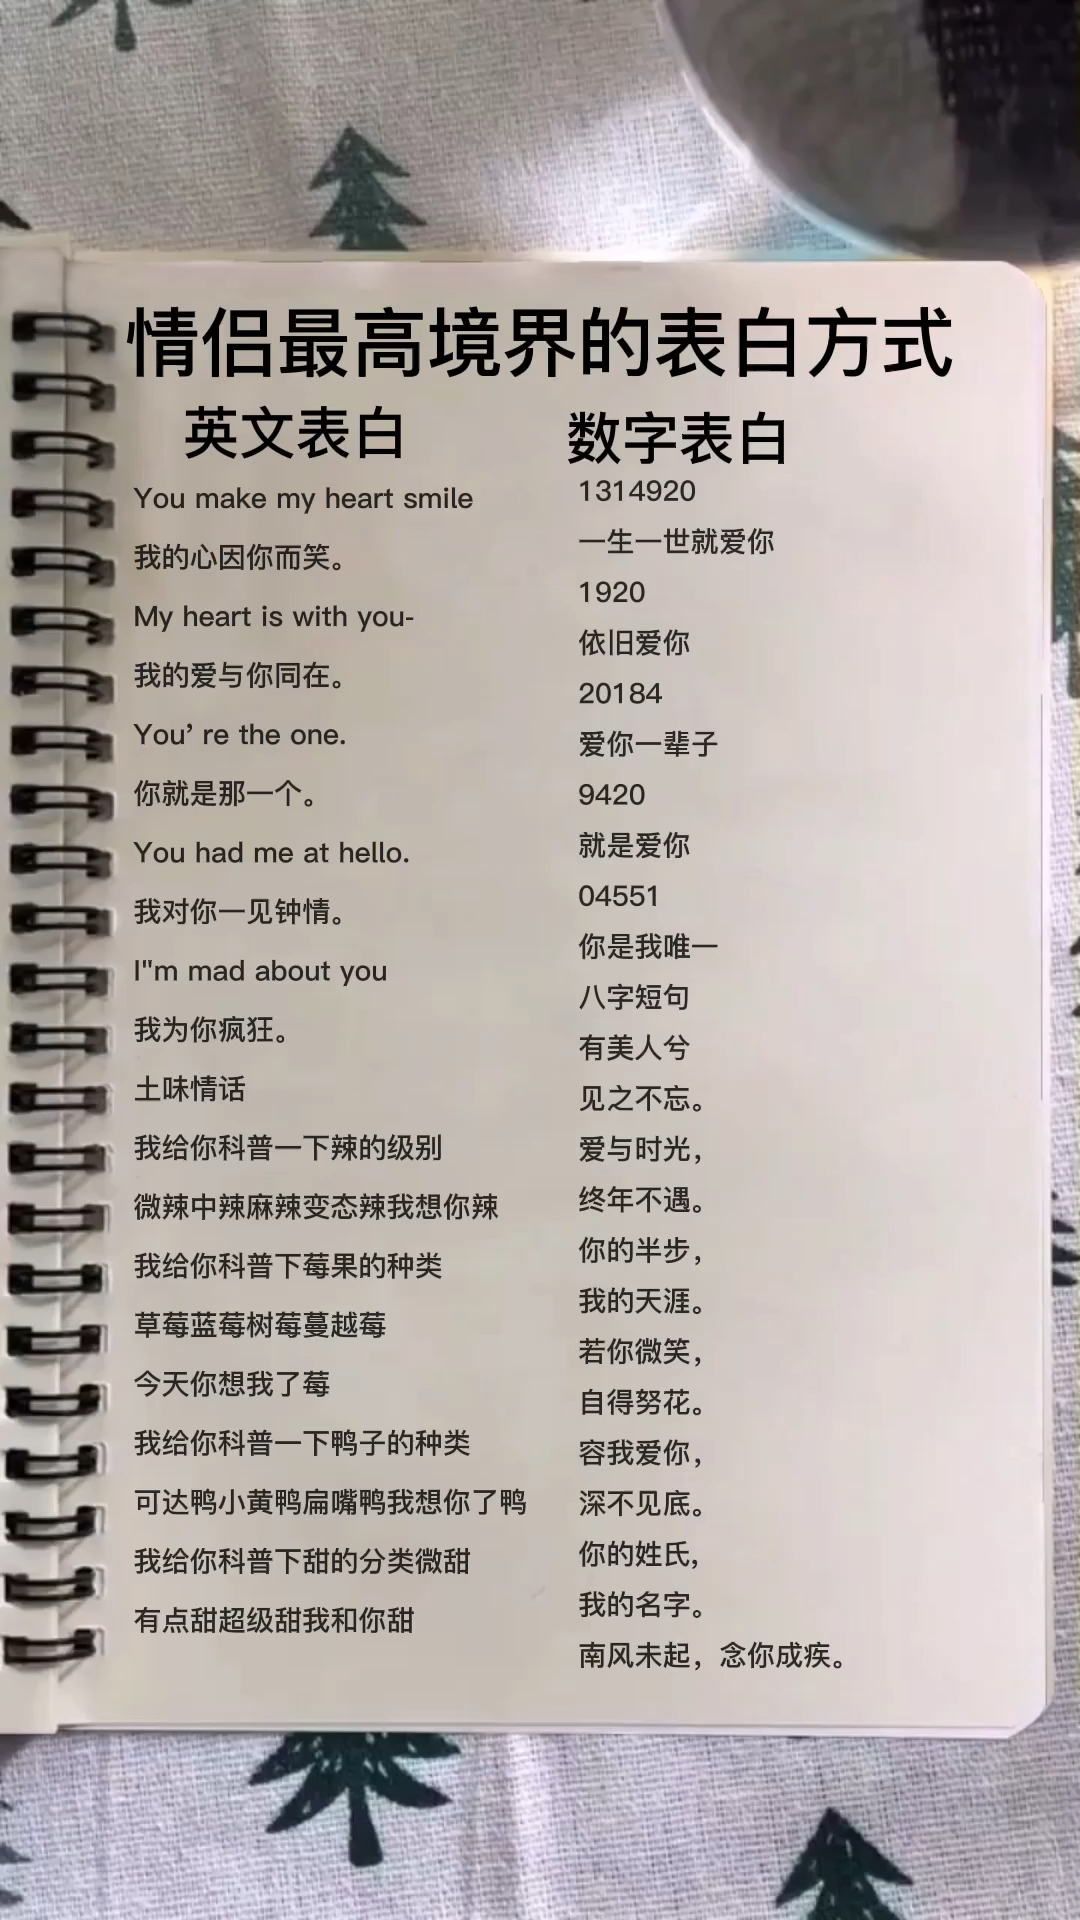 情侣最高境界的表白方式
英文表白
You make my heart smile
我的心因你而笑。
My heart is with you-
我的爱与你同在。
You’ re the one.
你就是那一个。
You had me at hello.
我对你一见钟情。
I"m mad about you
我为你疯狂。
土味情话
我给你科普一下辣的级别
微辣中辣麻辣变态辣我想你辣
我给你科普下莓果的种类
草莓蓝莓树莓蔓越莓
今天你想我了莓
我给你科普一下鸭子的种类
可达鸭小黄鸭扁嘴鸭我想你了鸭
我给你科普下甜的分类微甜
有点甜超级甜我和你甜
数字表白
1314920
一生一世就爱你
1920
依旧爱你
20184
爱你一辈子
9420
就是爱你
04551
你是我唯一
八字短句
有美人兮
见之不忘。
爱与时光，
终年不遇。
你的半步，
我的天涯。
若你微笑，
自得努花。
容我爱你，
深不见底。
你的姓氏,
我的名字。
南风未起，念你成疾。